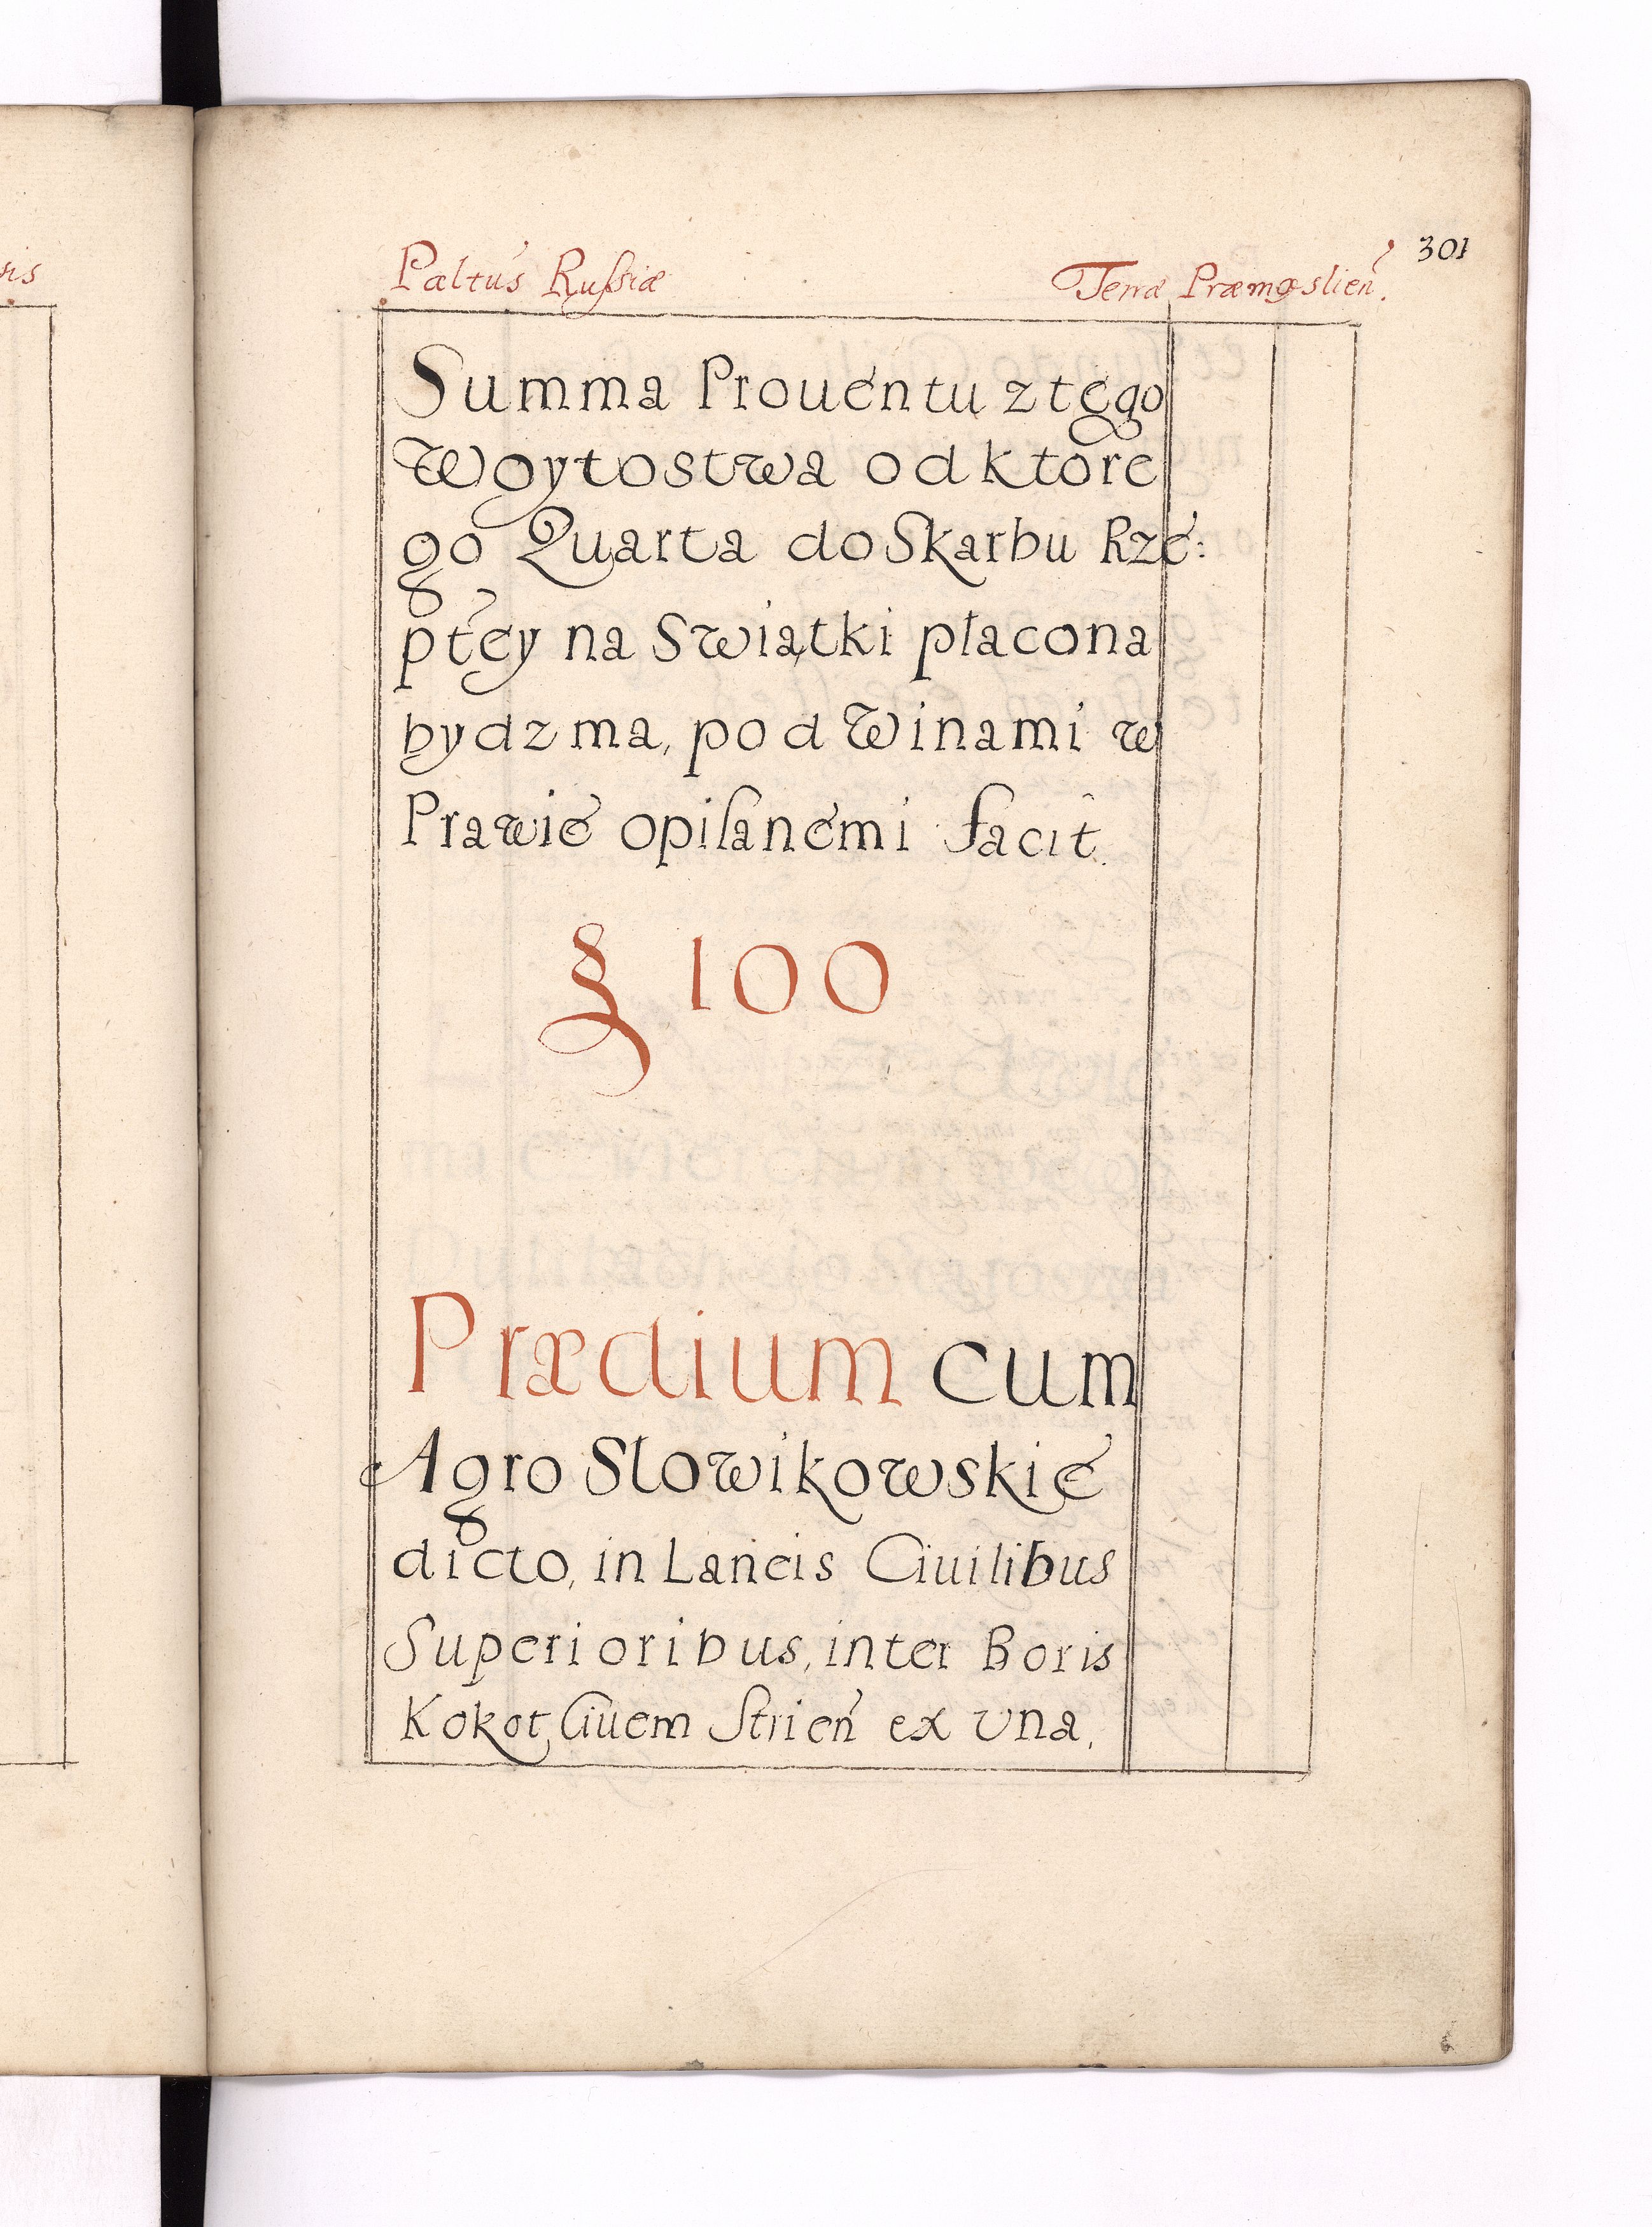 ris
Paltus Russiæ
Terræ Præmysliēn.
301
Summa Prouentu z tego
Woytostwa od ktore
go Quarta do Skarbu Rze:
ptey na Swiątki płacona
bydz ma, pod Winami w
Prawie opisanemi facit.
§ 100
Prædium cum
Agro Slowikowskie
dicto, in Laneis Ciuilibus
Superioribus, inter Boris
Kokot Ciuem Strień ex vna,